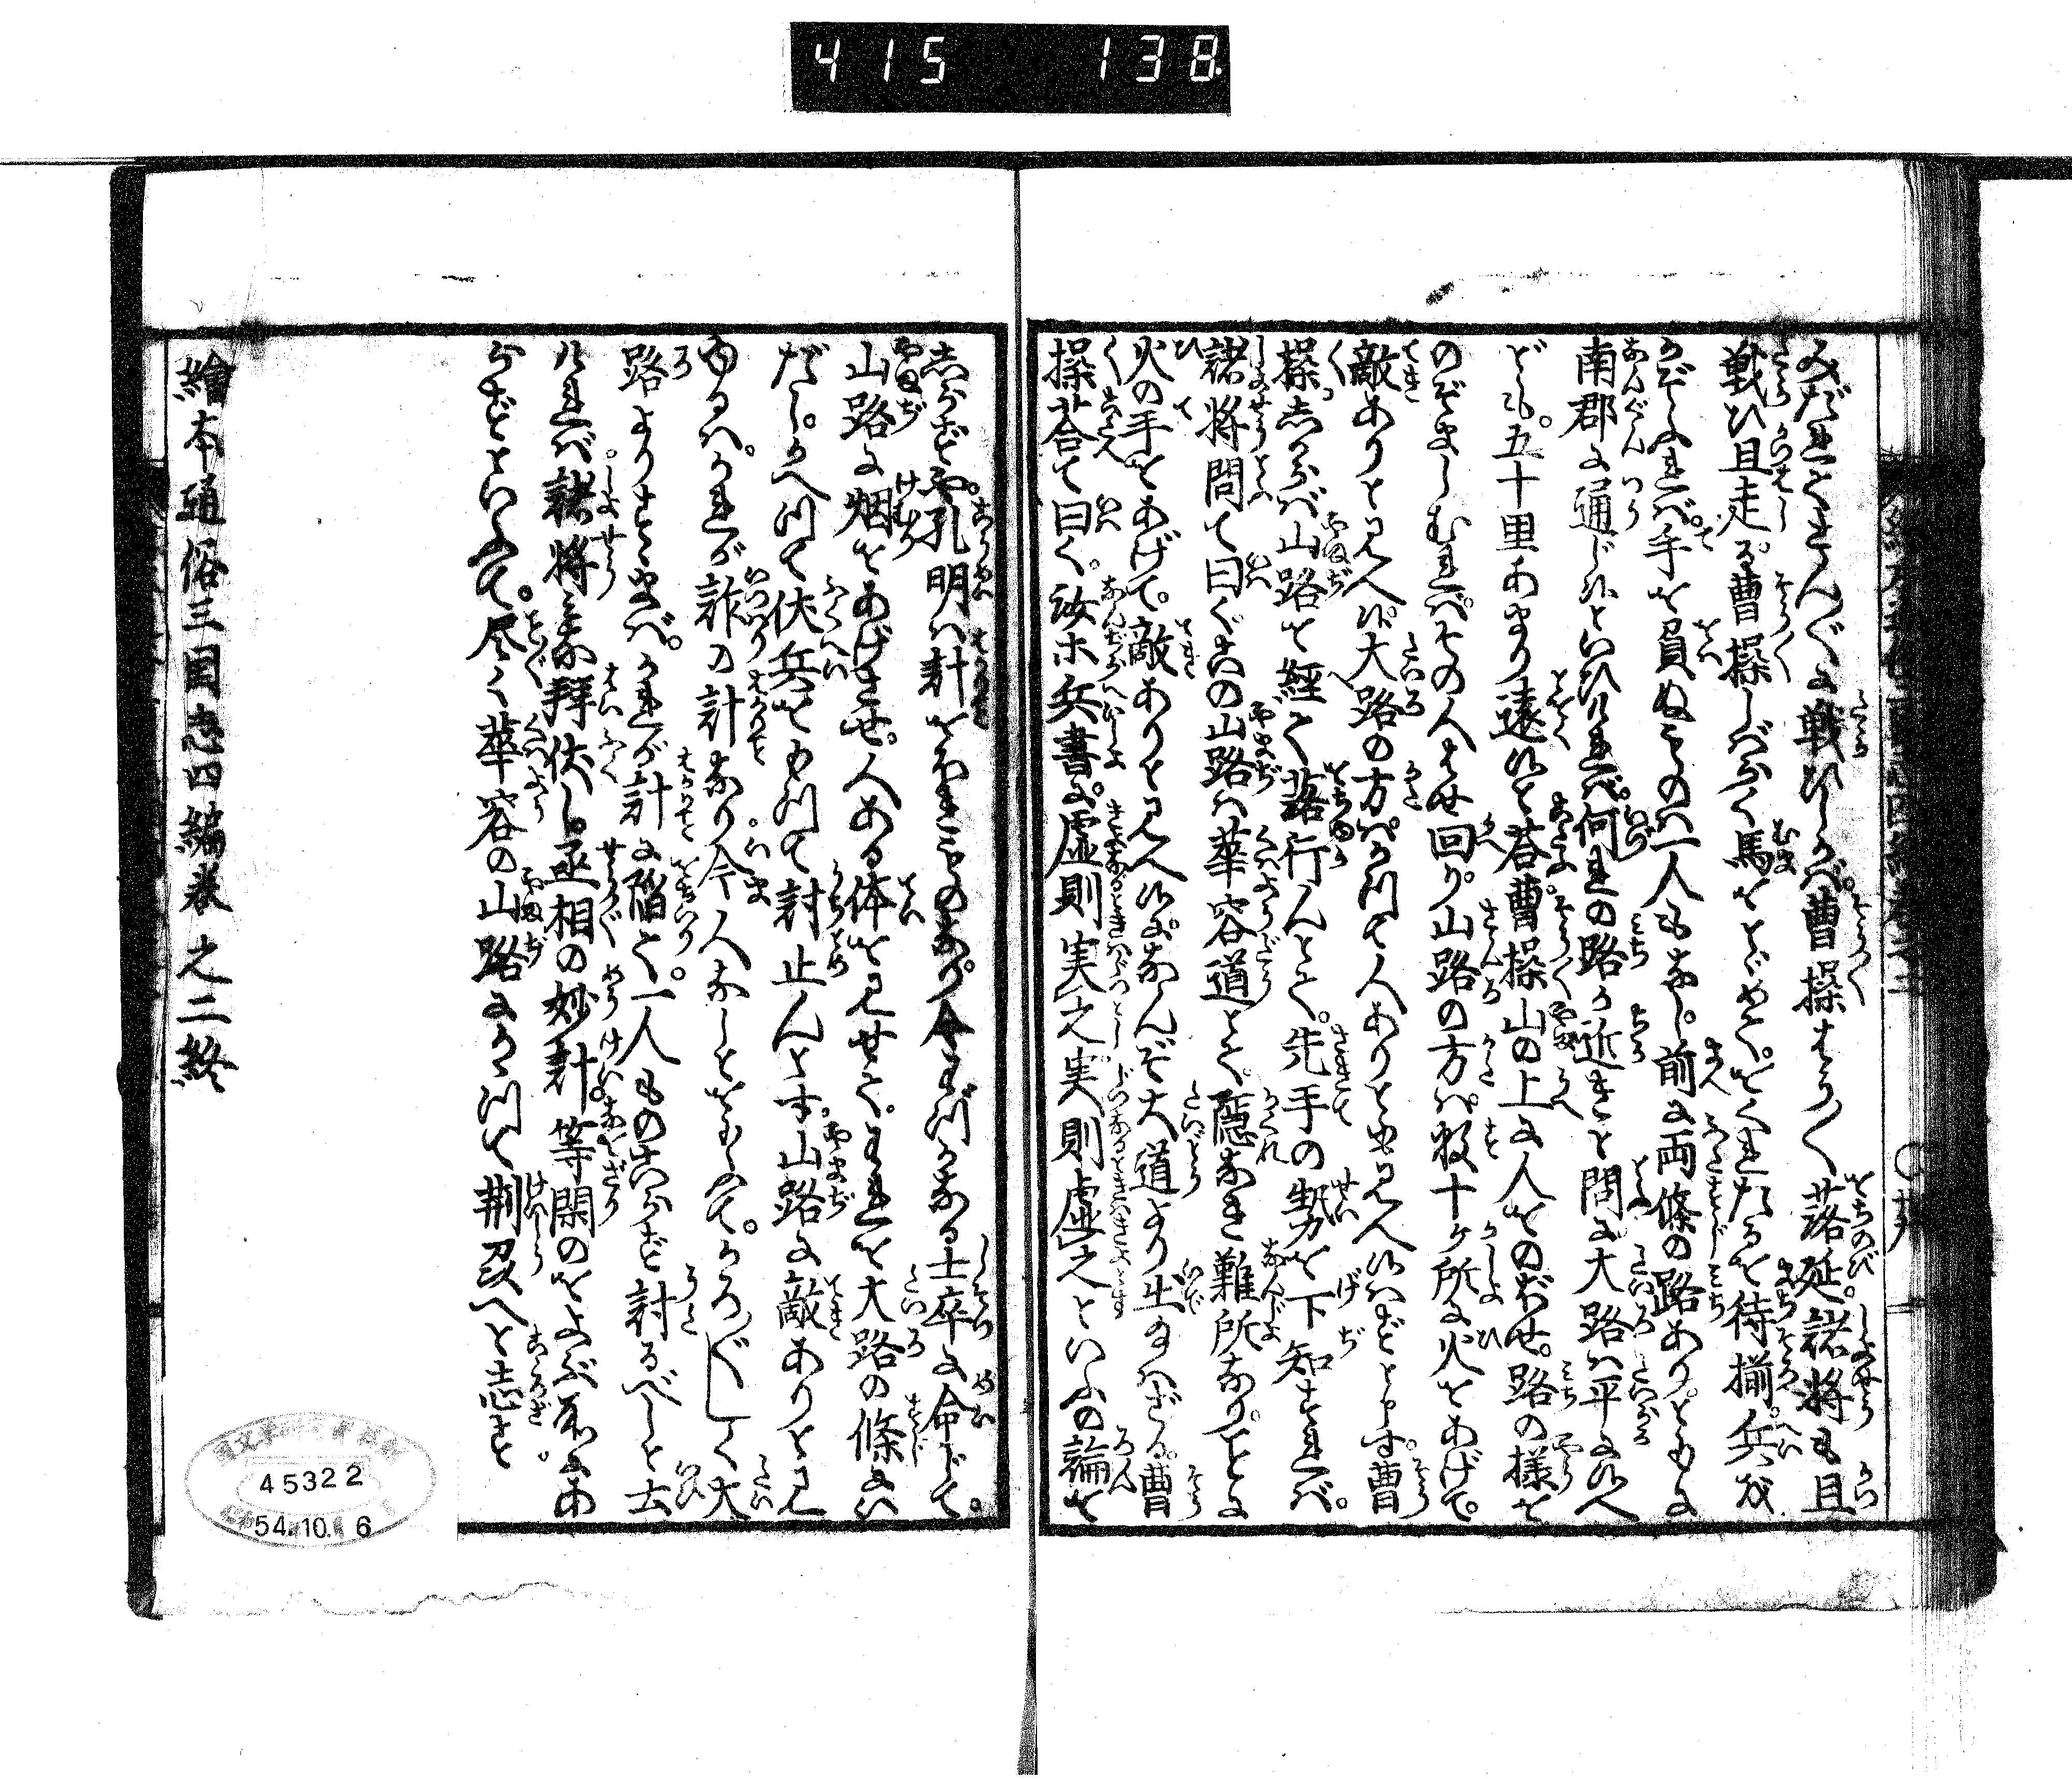 415 138
みだれてさん〴〵に戦ひしかば。曹操はう〳〵落延。諸将も且
戦ひ且走る。曹操しばらく馬をとゞめて。おくれたるを待揃。兵を
かぞふれば。手を負ぬものは一人もなし。前に両條の路あり。ともに
南郡に通じ候といひければ。何れの路か近きと問に大路は平に候へ
ども。五十里あまり遠候と荅。曹操山の上に人をのぼせ。路の様を
のぞましむれば。その人はせ回り。山路の方は。数十ケ所に火をあげて。
敵ありと見へ候。大路の方は。かつて人ありとも見へ候はずと申す。曹
操しからば山路を経て落行んとて。先手の勢を下知すれば。
諸将問て曰く。此の山路は華容道とて。隠なき難所なり。ことに
火の手をあげて。敵ありと見へ候に。なんぞ大道より出給はざる。曹
操荅て曰く。汝ホ兵書に。虚則実之実則虚之といふの論を
しらずや。孔明は計をよくするものなり。今わづかなる士卒に命じて。
山路に烟をあげさせ。人ある体を見せて。われを大路の條にい
だし。かへつて伏兵をもつて討止んとす。山路に敵ありと見
ゆるは。かれが詐の計なり今人なしとおもふて。かろ〴〵しく大
路よりすゝまば。かれが計に陥て。一人ものこらず討るべしと云
ければ諸将みな拝伏し。丞相の妙計。等閑のおよぶ所にあ
らずといふて。尽く華容の山路にかゝつて荆及へと志さす
繪本通俗三国志四編巻之二終
45322
54.10.6